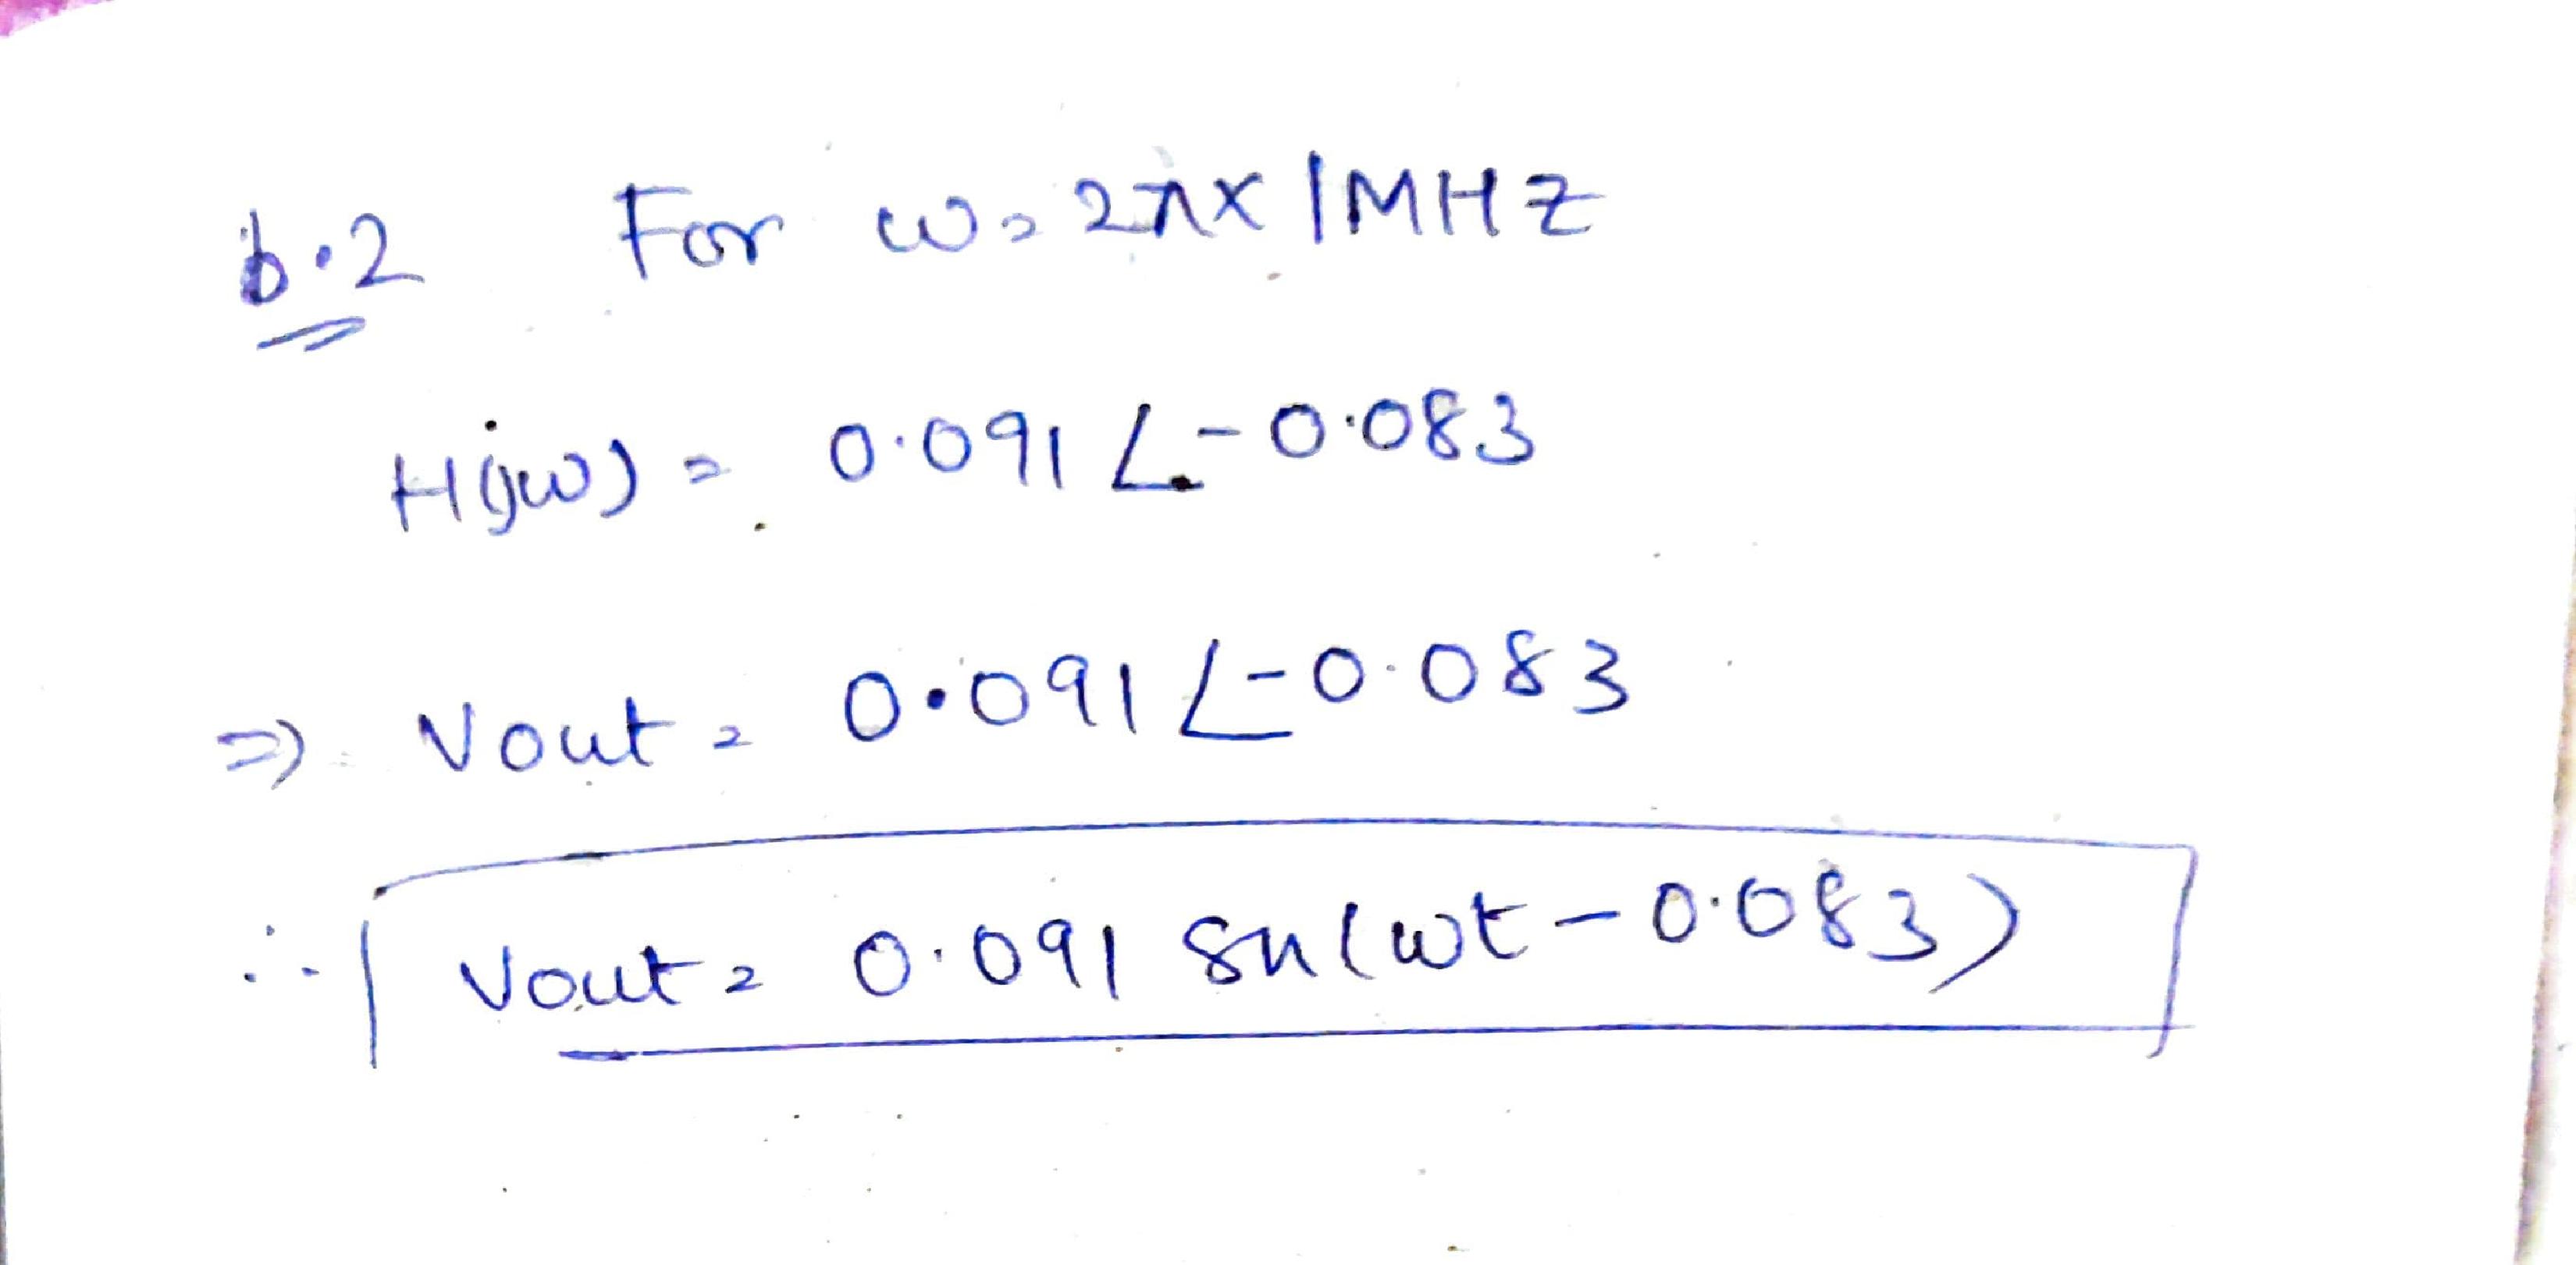 b.2 For ω = 2π× 1MHZ
H(jω) = 0.091 ∠-0.083
⇒ Vout = 0.091 ∠-0.083
∴ Vout = 0.091 sin(ωt - 0.083)